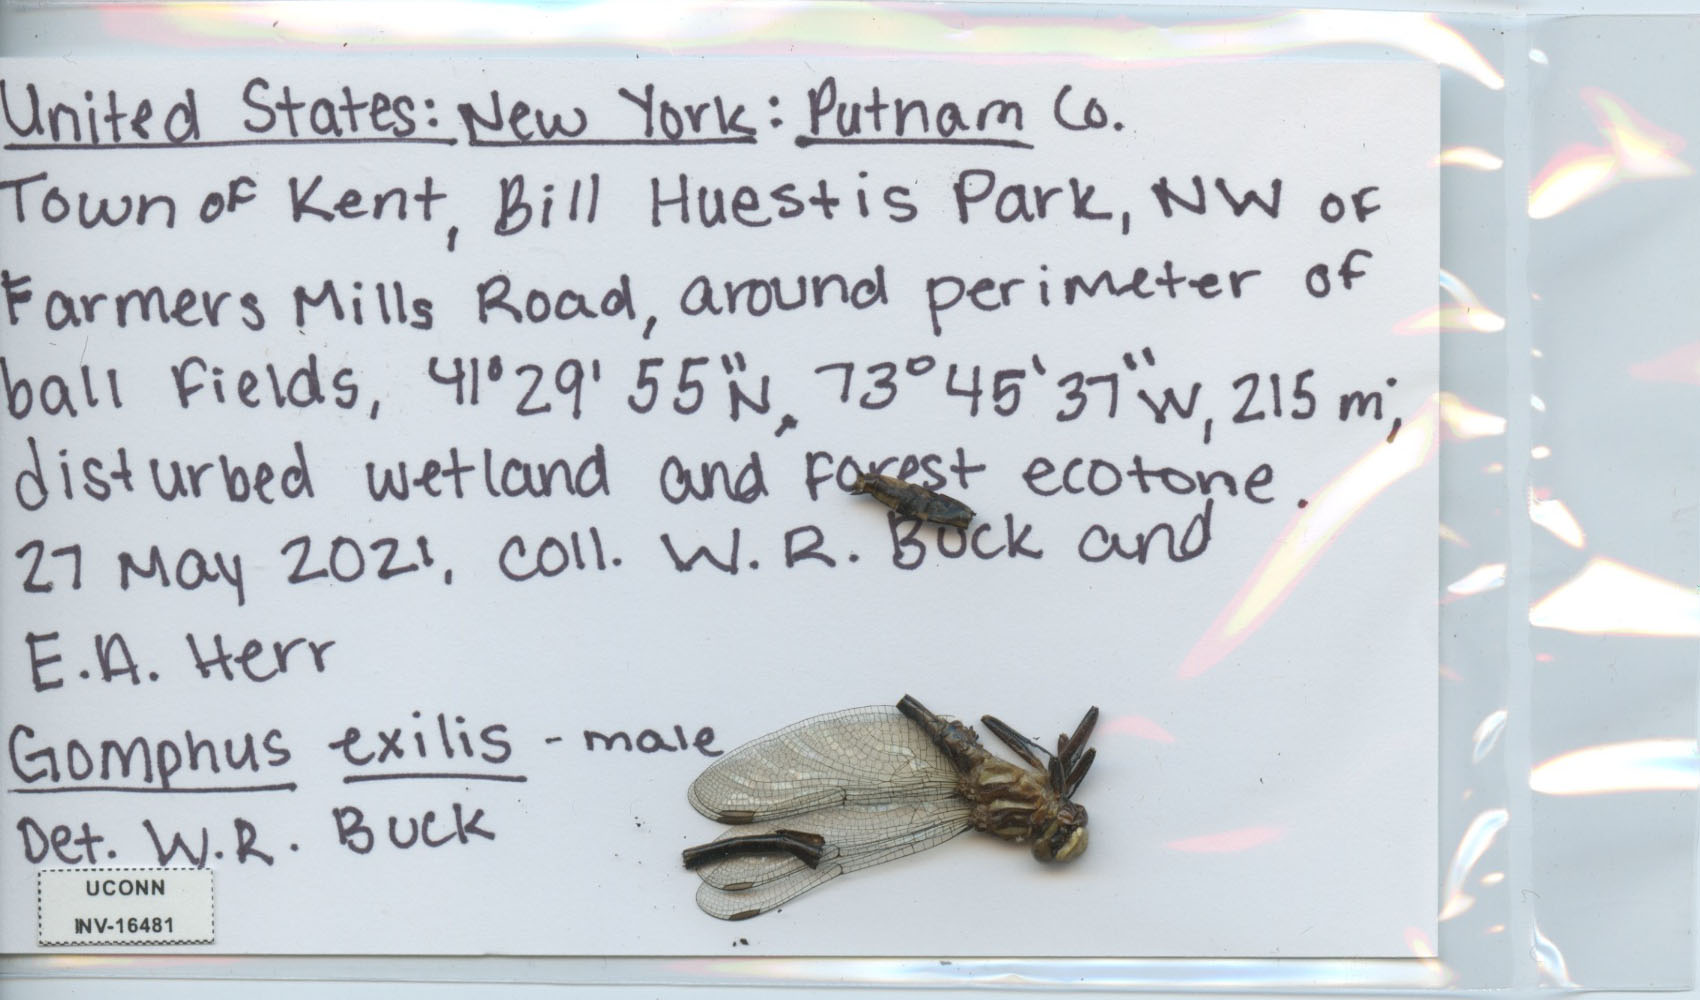 United States: New York: Putnam Co.
Town of Kent, Bill Huestis Park, NW of
Farmers Mills Road, around perimeter of
ball fields, 41°29'55"N, 73°45'37"W, 215 m;
disturbed wetland and forest ecotone.
27 May 2021, coll. W. R. Buck and
E.A. Herr
Gomphus exilis - male
Det. W.R. Buck
UCONN
INV-16481